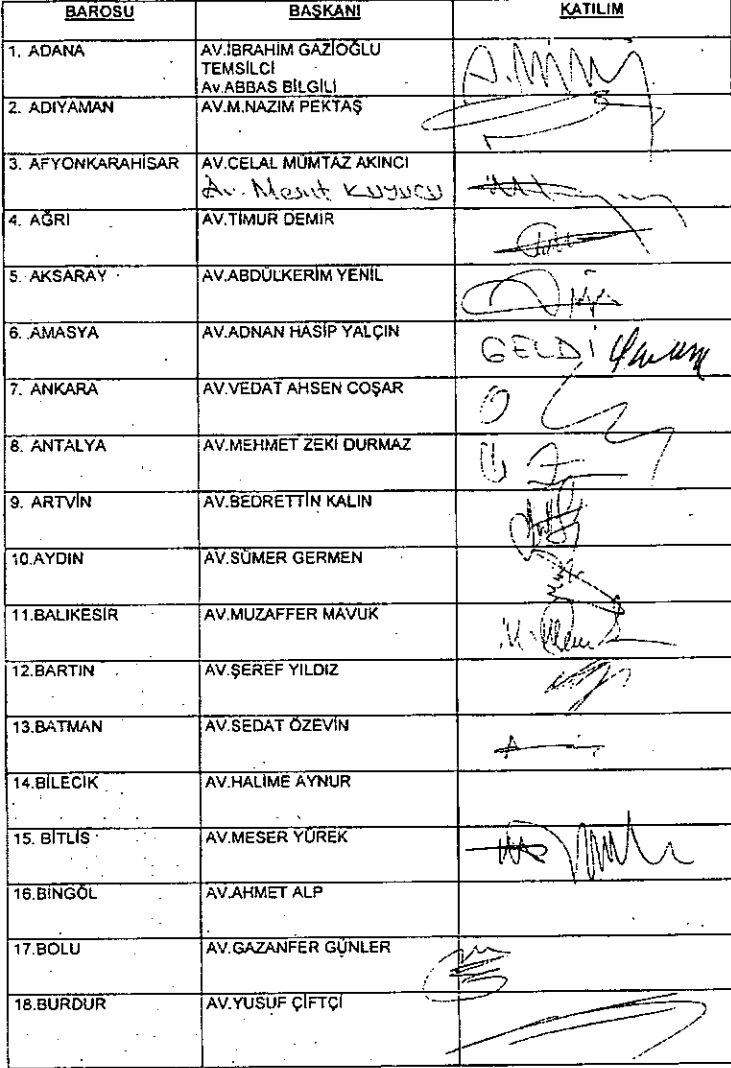 BAROSU BAŞKANI KATILIM
1. ADANA AV.İBRAHİM GAZİOĞLU
TEMSİLCİ
Av.ABBAS BİLGİLİ
2. ADIYAMAN AV.M.NAZIM PEKTAŞ
3. AFYONKARAHİSAR AV.CELAL MÜMTAZ AKINCI
Av. Mesut KUYUCU
4. AĞRI AV.TİMUR DEMİR
5. AKSARAY AV.ABDÜLKERİM YENİL
6. AMASYA AV.ADNAN HASİP YALÇIN GELDİ
7. ANKARA AV.VEDAT AHSEN COŞAR
8. ANTALYA AV.MEHMET ZEKİ DURMAZ
9. ARTVİN AV.BEDRETTİN KALIN
10.AYDIN AV.SÜMER GERMEN
11.BALIKESİR AV.MUZAFFER MAVUK
12.BARTIN AV.ŞEREF YILDIZ
13.BATMAN AV.SEDAT ÖZEVİN
14.BİLECİK AV.HALİME AYNUR
15. BİTLİS AV.MESER YÜREK
16.BİNGÖL AV.AHMET ALP
17.BOLU AV.GAZANFER GÜNLER
18.BURDUR AV.YUSUF ÇİFTÇİ